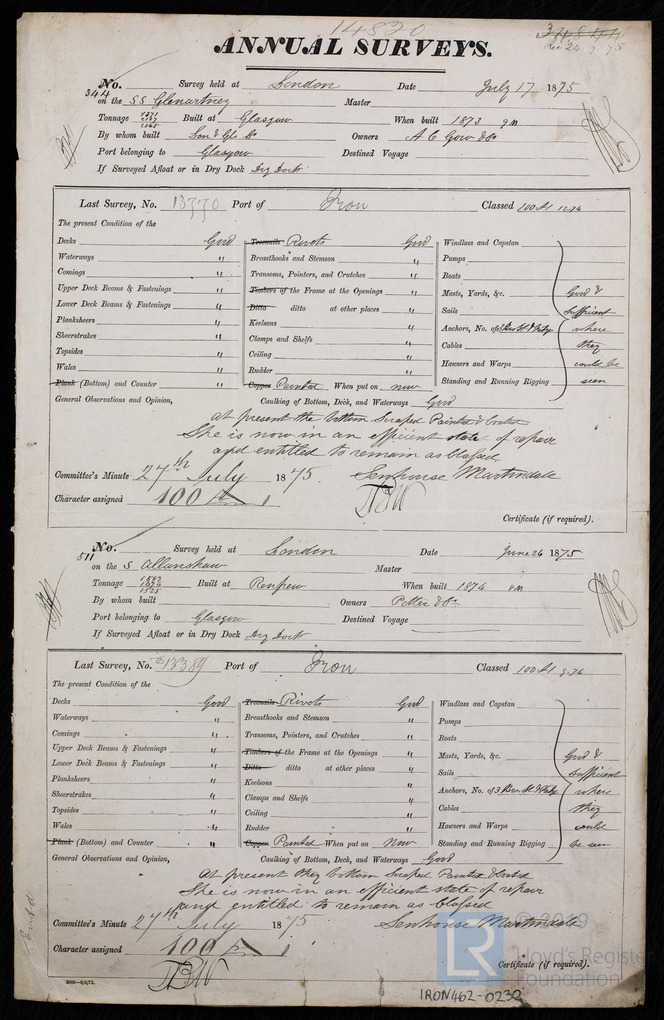 14820
ANNUAL SURVEYS.
Rec 24.7.75
No. 344 Survey held at London Date July 17 1875
on the SS Glenartney Master
Tonnage Built at Glasgow When built 1873
By whom built Lon & Gls Co Owners A C Gow & Co
Port belonging to Glasgow Destined Voyage
If Surveyed Afloat or in Dry Dock Dry Dock
Last Survey, No. 13770 Port of Iron Classed 100A1 12.74
The present Condition of the
Decks Good Treenails Rivets Good Windlass and Capstan
Waterways " Breasthooks and Stemson " Pumps
Comings " Transoms, Pointers, and Crutches " Boats
Upper Deck Beams & Fastenings " Timbers of the Frame at the Openings " Masts, Yards, &c. Good &
Lower Deck Beams & Fastenings " Ditto ditto at other places " Sails sufficient
Planksheers " Keelsons " Anchors, No. of where
Sheerstrakes " Clamps and Shelfs " Cables they
Topsides " Ceiling " Hawsers and Warps could be
Wales " Rudder " Standing and Running Rigging seen
Plank (Bottom) and Counter " Copper Painted When put on now
General Observations and Opinion, Caulking of Bottom, Deck, and Waterways Good
At present the bottom Scraped Painted & Coated
She is now in an efficient state of repair
and entitled to remain as Classed
Committee's Minute 27th July 1875. Senhouse Martindale
Character assigned 100 A 1
Certificate (if required).
No. 511 Survey held at London Date June 26 1875
on the S Allanshaw Master
Tonnage 1583 1525 Built at Renfrew When built 1874
By whom built Owners Potter & Co
Port belonging to Glasgow Destined Voyage
If Surveyed Afloat or in Dry Dock Dry Dock
Last Survey, No. 13389 Port of Iron Classed 100A1 9.74
The present Condition of the
Decks Good Treenails Rivets Good Windlass and Capstan
Waterways " Breasthooks and Stemson " Pumps
Comings " Transoms, Pointers, and Crutches " Boats
Upper Deck Beams & Fastenings " Timbers of the Frame at the Openings " Masts, Yards, &c. Good &
Lower Deck Beams & Fastenings " Ditto ditto at other places " Sails sufficient
Planksheers " Keelsons " Anchors, No. of 3 where
Sheerstrakes " Clamps and Shelfs " Cables they
Topsides " Ceiling " Hawsers and Warps could
Wales " Rudder " Standing and Running Rigging be seen
Plank (Bottom) and Counter " Copper Painted When put on Now
General Observations and Opinion, Caulking of Bottom, Deck, and Waterways Good
At present they bottom Scraped Painted & Coated
She is now in an efficient state of repair
and entitled to remain as Classed
Committee's Minute 27th July 1875 Senhouse Martindale
Character assigned 100 A 1
Certificate (if required).
© 2019
LR Lloyd's Register
Foundation
IRON462-0230